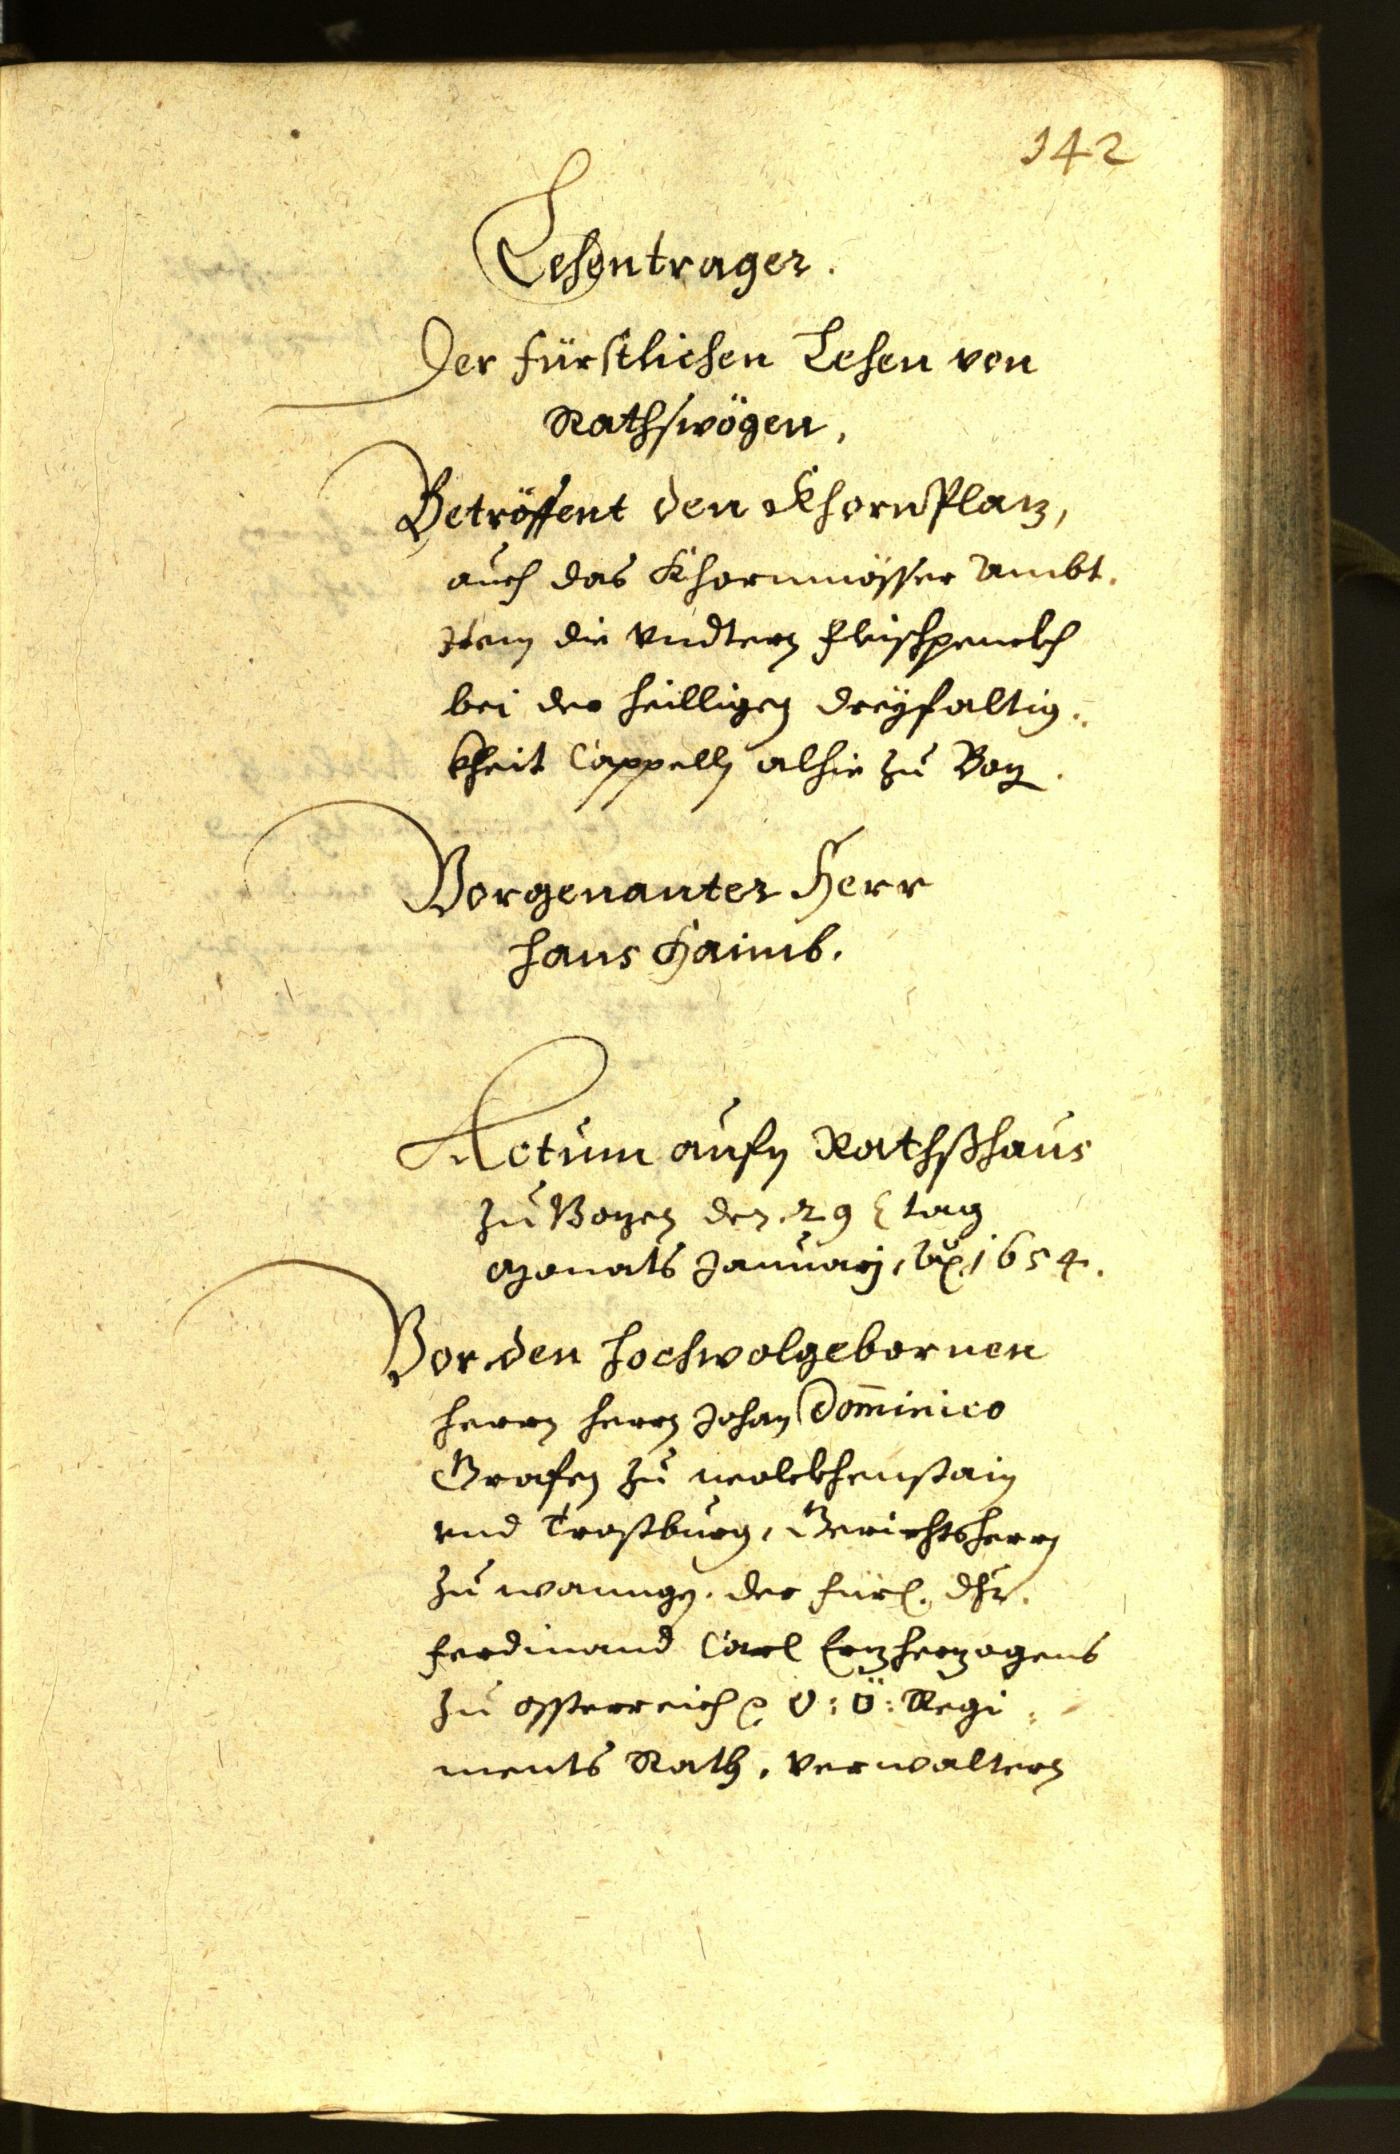 142
Lehentrager.
Der fürstlichen Lehen von
Rathswögen,
Betröffent den Khornplaz,
auch das Khornmösser Ambt.
Item die undtern fleischpenckh
bei der heilligen dreÿfaltig:
kheit Cappelln alhie zu Boz.
Vorgenanter Herr
hans Haimb.
Actum aufn Rathßhaus
zu Bozen den 29 tag
Monats Januarj, 1654.
Vor den hochwolgebornen
herrn herrn Johan Dom̄inico
Grafen zu wolckhenstain
und Trostburg, Gerichtsherrn
zu wanngen. der fürl. dhr.
ferdinand Carl Erzherzogens
zu össterreich O: Ö: Regi:
ments Rath, verwaltern